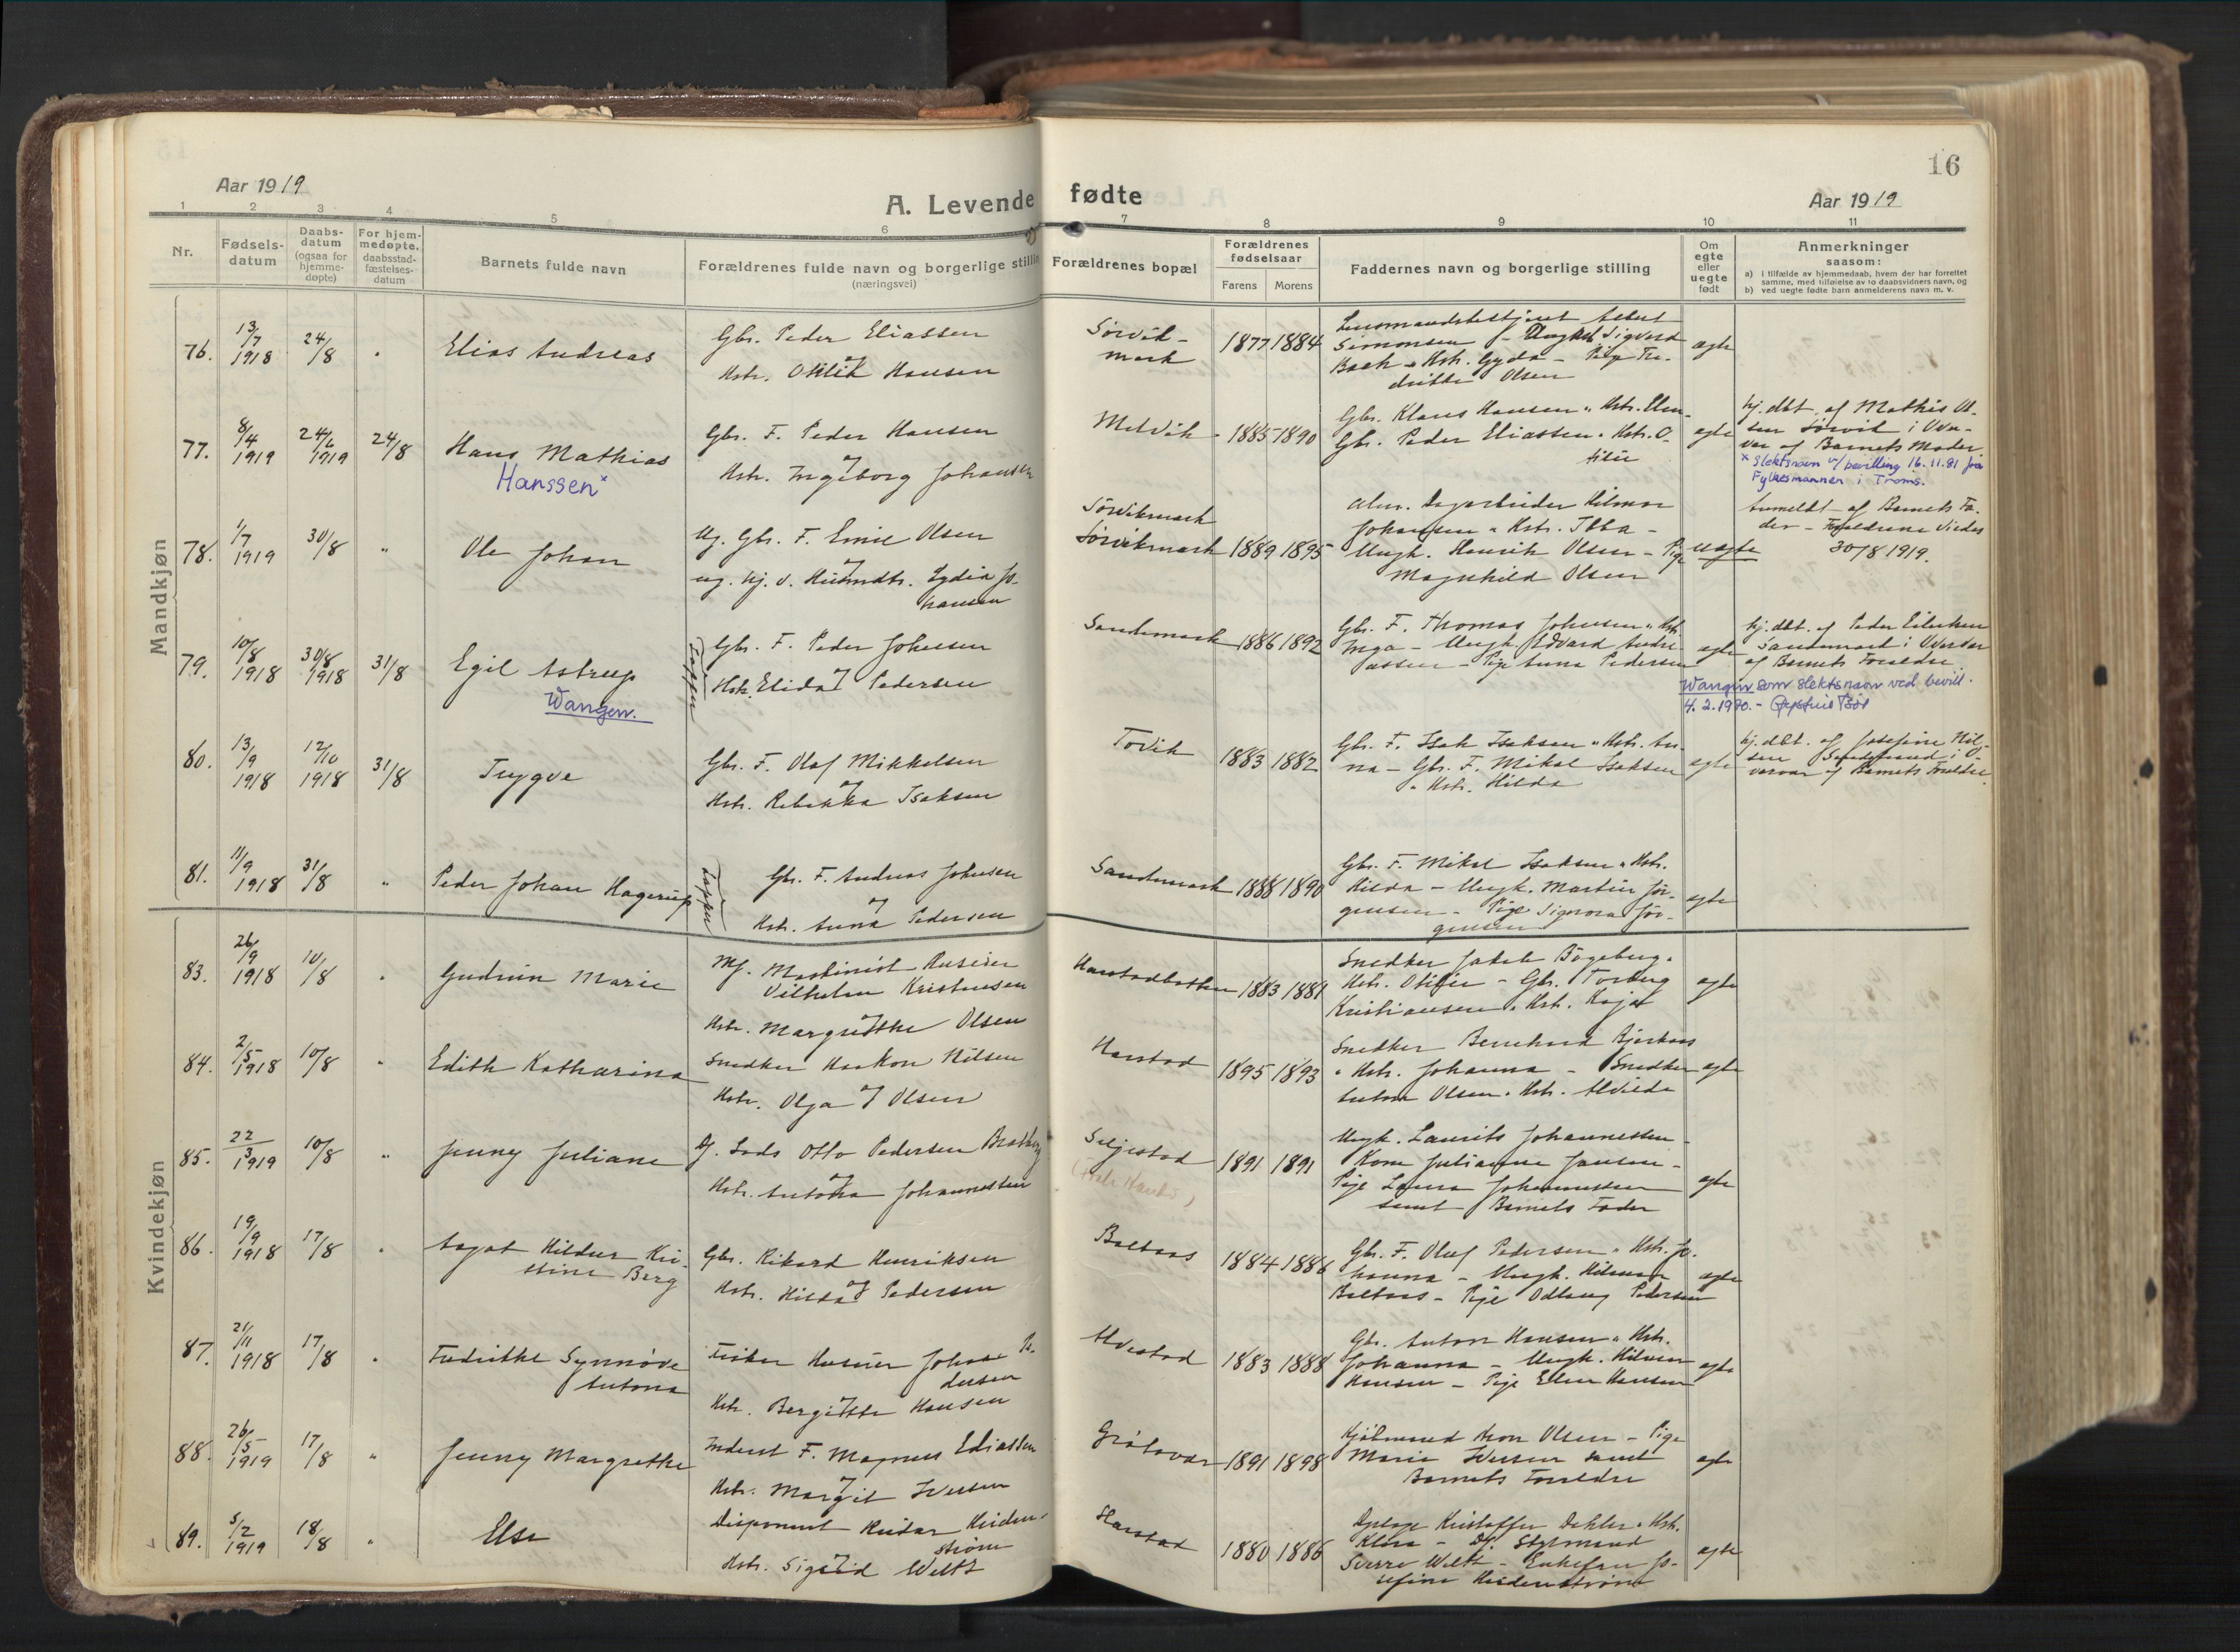 16
Aar 1919
A. Levende fødte
Aar 1919
1 2 3 4 5 6 7 8 9 10 11
Nr.
Fødsels-
datum
Daabs-
datum
(ogsaa for
hjemme-
døpte)
For hjem-
medøpte.
daabsstad-
fæstelses-
datum
Barnets fulde navn
Forældrenes fulde navn og borgerlige stillin
(næringsvei)
Forældrenes bopæl
Forældrenes
fødselsaar
Farens Morens
Faddernes navn og borgerlige stilling
Om
egte
eller
uegte
født
Anmerkninger
saasom:
a) i tilfælde av hjemmedaab, hvem der har forrettet
samme, med tilføielse av to daabsvidners navn, og
b) ved uegte fødte barn anmelderens navn m. v.
Mandkjøn
76. 13/7 1918 24/8 "
Elias Andreas
Gbr. Peder Eliassen
Hstr. Otilie Hansen
Sørvik-
mark
1877 1884
Lensmandsbetjent
Simonsen - Ungk. Sigvard
Bach " Hstr. Gyda - Pige Fre-
drikke Olsen
egte
77. 8/4 1919 24/6 1919 24/8
Hans Mathias
Hanssen x
Gbr. F. Peder Hansen
Hstr. Ingeborg Johansen
Melvik
1885 1890
Gbr. Klaus Hansen " Hstr. Elen-
Gbr. Peder Eliassen " Hstr. O-
tilie
egte
hj. dbt. af Mathis Ol-
sen Sørvik i Over-
vær af Barnets Moder.
x Slektsnavn v/ bevilling 16.11.81 fra
Fylkesmannen i Troms.
78. 1/7 1919 30/8 "
Ole Johan
Ug. Gbr. F. Emil Olsen
ug. hj. v. Husmdtr. Lydia Jo-
hansen
Sørvikmark
Sørvikmark
1889 1895
Dagarbeider Hilmar
Johansen " Hstr. Ibba -
Ungk. Henrik Olsen - Pige
Magnhild Olsen
uegte
Anmeldt af Barnets Fa-
der - Forældrene viedes
30/8 1919.
79. 10/8 1918 30/8 1918 31/8
Egil Astrup
Wangen.
Gbr. F. Peder Johnsen
Hstr. Elida Pedersen
Sandemark
1886 1892
Gbr. F. Thomas Johnsen " Hstr.
Inga - Ungk. Edvard Andre-
assen - Pige Anna Pedersen
egte
hj. dbt. af Peder Eilertsen
Sandemark i Overvær
af Barnets Forældre.
Wangen som slektsnavn ved bevill.
4.2.1970. -
80. 13/9 1918 12/10 1918 31/8
Trygve
Gbr. F. Olaf Mikkelsen
Hstr. Rebekka Isaksen
Tovik
1883 1882
Gbr. F. Isak Isaksen " Hstr. An-
na - Gbr. F. Mikal Isaksen
" Hstr. Hilda
egte
hj. dbt. af Josefine Nil-
sen i O-
vervær af Barnets Forældre
81. 11/9 1918 31/8 "
Peder Johan Hagerup
Gbr. F. Andreas Johnsen
Hstr. Anna Pedersen
Sandemark
1888 1890
Gbr. F. Mikal Isaksen " Hstr.
Hilda - Ungk. Martin Jør-
gensen - Pige Signora Jør-
gensen
egte
Kvindekjøn
83. 26/9 1918 10/8 "
Gudrun Marie
Mf. Maskinist Huseier
Vilhelm Kristensen
Hstr. Margrethe Olsen
Harstadbotten
1883 1881
Snedker Jakob Bøgeberg "
Hstr. Otilie - Gbr. Torberg
Kristiansen " Hstr. Kaja
egte
84. 2/5 1918 10/8 "
Edith Katharina
Snedker Haakon Nilsen
Hstr. Olga Olsen
Harstad
1895 1893
Snedker Bernhard Bjerkaas
" Hstr. Johanna - Snedker
Anton Olsen " Hstr. Alvilde
egte
85. 22/3 1919 10/8 "
Jenny Juliane
Df. Lods Otto Pedersen
Hstr. Antona Johannessen
Seljestad
1891 1891
Ungk. Laurits Johannessen -
Kone Julianne Jansen -
Pige Laura Johannessen
samt Barnets Fader
egte
86. 19/9 1918 17/8 "
Aagot Hildur Kri-
stine Berg
Gbr. Rikard Henriksen
Hstr. Hilda Pedersen
Baltaas
1884 1886
Gbr. F. Oluf Pedersen " Hstr. Jo-
hanna - Ungk. Hilmar
Baltaas - Pige Odlaug Pedersen
egte
87. 21/11 1918 17/8 "
Fredrikke Synnøve
Antona
Fisker Huseier Johan Pe-
dersen
Hstr. Bergitte Hansen
Alvestad
1883 1888
Gbr. Anton Hansen " Hstr.
Johanna - Ungk. Hilmar
Hansen - Pige Ellen Hansen
egte
88. 26/5 1919 17/8 "
Jenny Margrethe
Inderst F. Magnus Ediassen
Hstr. Margit Iversen
Grøtavær
1891 1898
Aron Olsen - Pige
Marie Iversen samt
Barnets Forældre
egte
89. 5/2 1919 18/8 "
Else
Disponent Reidar Heiden-
strøm
Hstr. Sigrid Weltz
Harstad
1880 1886
Kristoffer Dahler " Hstr.
Klara - Df. Styrmand
Sverre Weltz - Enkefru Jo-
sefine Heidenstrøm
egte